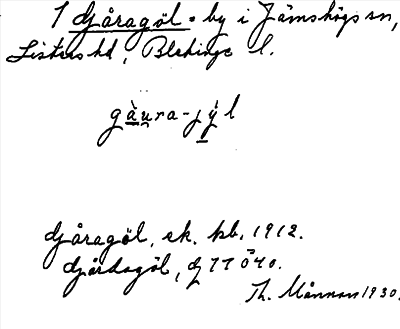 1 Djåragöl = by i Jämshögs sn,
Listers hd, Blekinge l.
gàura-jýl
Djåragöl, ek. kb. 1912.
Djårdagöl, dj 1
Th. Månnson 1930.